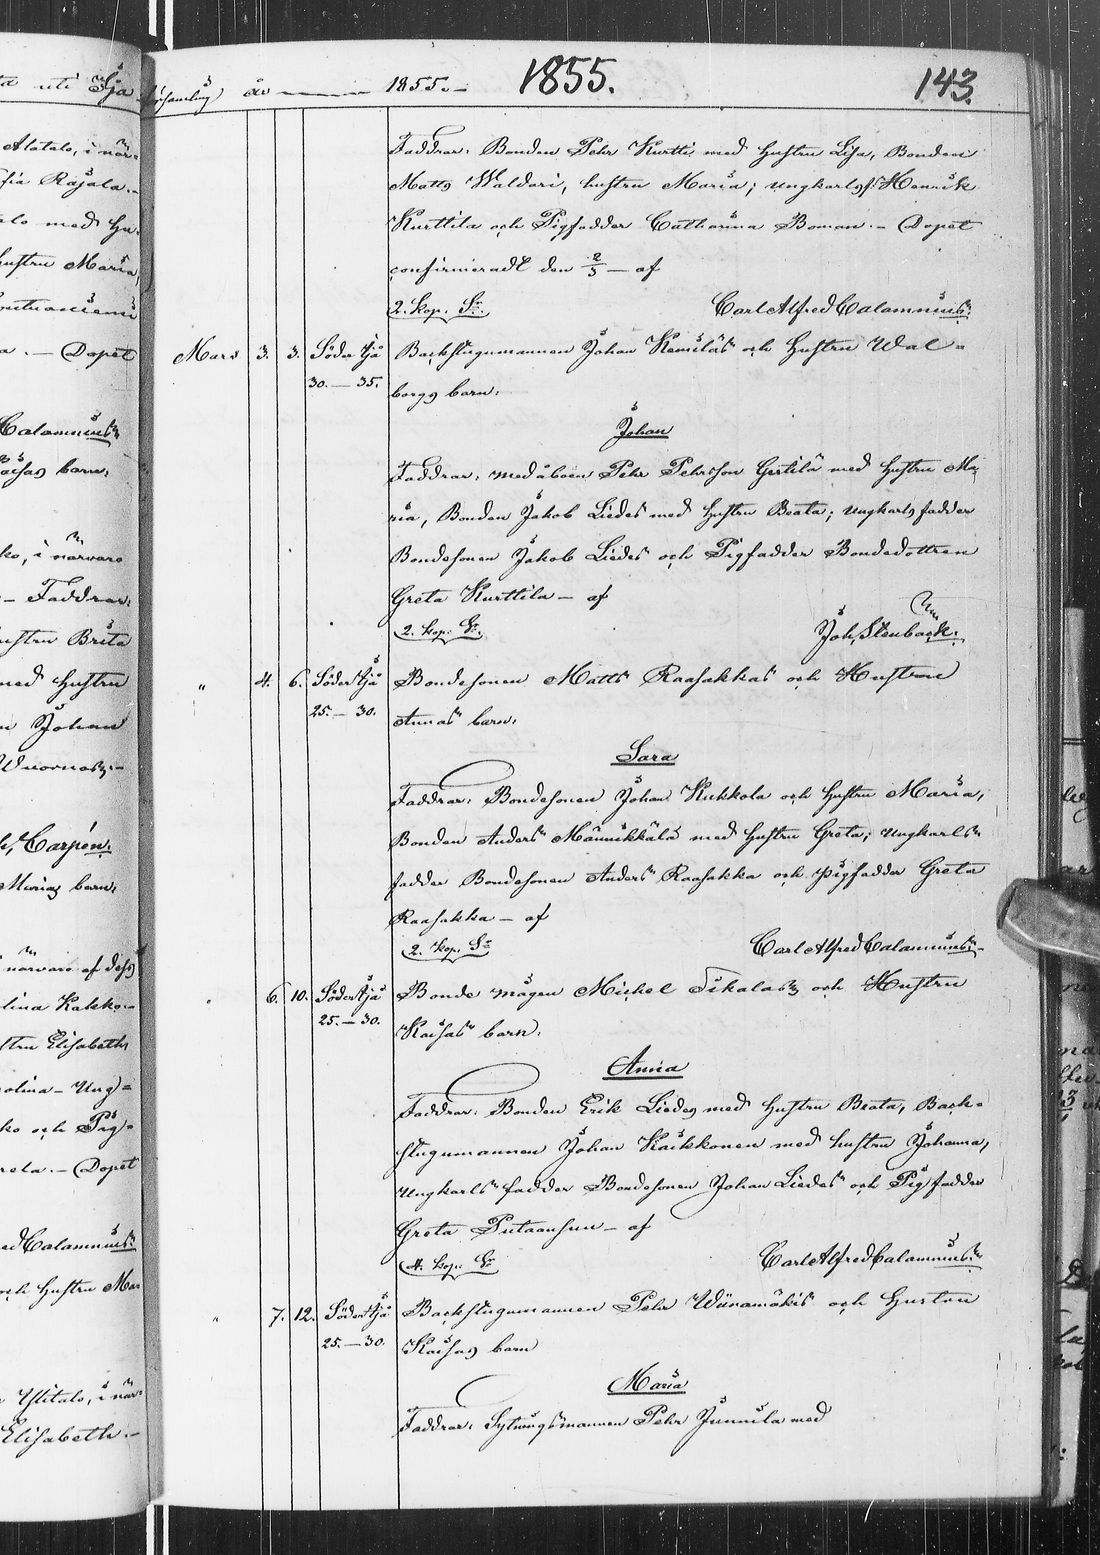 ta uti Ijo församling år 1855.
1855.
143.
Alatalo, i när-
fia Rajala.-
alo med hu-
hustru Maria,
a. — Dopet
Calamnius
Caisas barn.
ko, i närvaro
- Faddrar:
hustru Brita
med hustru
n Johan
Carpén.
Marias barn.
närvaro af dess
lina Kakko-
stru Elisabeth,
rolina - Ung-
ko och Pig-
reta. - Dopet
ed Calamnius
och hustru Mar
Ylitalo, i när-
Elisabeth.
Faddrar: Bonden Pehr Kurtti med hustru Lisa, Bonden
Matts Waldari, hustru Maria; ungkarlsf. Henrik
Kurttila och Pigfadder Catharina Boman. - Dopet
confirmeradt den 2/5 - af
2. kop. Sr. Carl Alfred Calamnius.
Mars 3. 3. Söder Ijå Backstugumannen Johan Kemiläs och Hustru Wal-
30. - 35. borgs barn:
Johan
Faddrar: medåboen Pehr Pehrsson Gertilä med hustru Ma-
ria, Bonden Jakob Liedes med hustru Beata; ungkarlsfadder
Bondesonen Jakob Liedes och Pigfadder Bondedottren
Greta Kurttila - af
2. kop. Sr. Joh. Stenbäck.
" 4. 6. Söder Ijå Bondesonen Matts Raasakkas och Hustrun
25. - 30. Annas barn:
Sara
Faddrar: Bondesonen Johan Kukkola och hustru Maria,
Bonden Anders Männikkälä med hustru Greta; ungkarls
fadder Bondesonen Anders Raasakka och pigfadder Greta
Raasakka - af
2. kop. Sr Carl Alfred Calamnius.
" 6. 10. Söder Ijå Bonde mågen Michel Tikalas och Hustru
25. - 30. Kaisas barn.
Anna
Faddrar: Bonden Erik Liedes med hustru Beata, Back-
stugumannen Johan Kaikkonen med hustru Johanna,
Ungkarls fadder Bondesonen Johan Liedes och Pigfadder
Greta Putaansuu - af
4. kop. Sr Carl Alfred Calamnius.
" 7. 12. Söder Ijå Backstugumannen Pehr Wiinamäkis och hustru
25. - 30. Kaisas barn
Maria
Faddrar: Sytningsmannen Pehr Junnila med